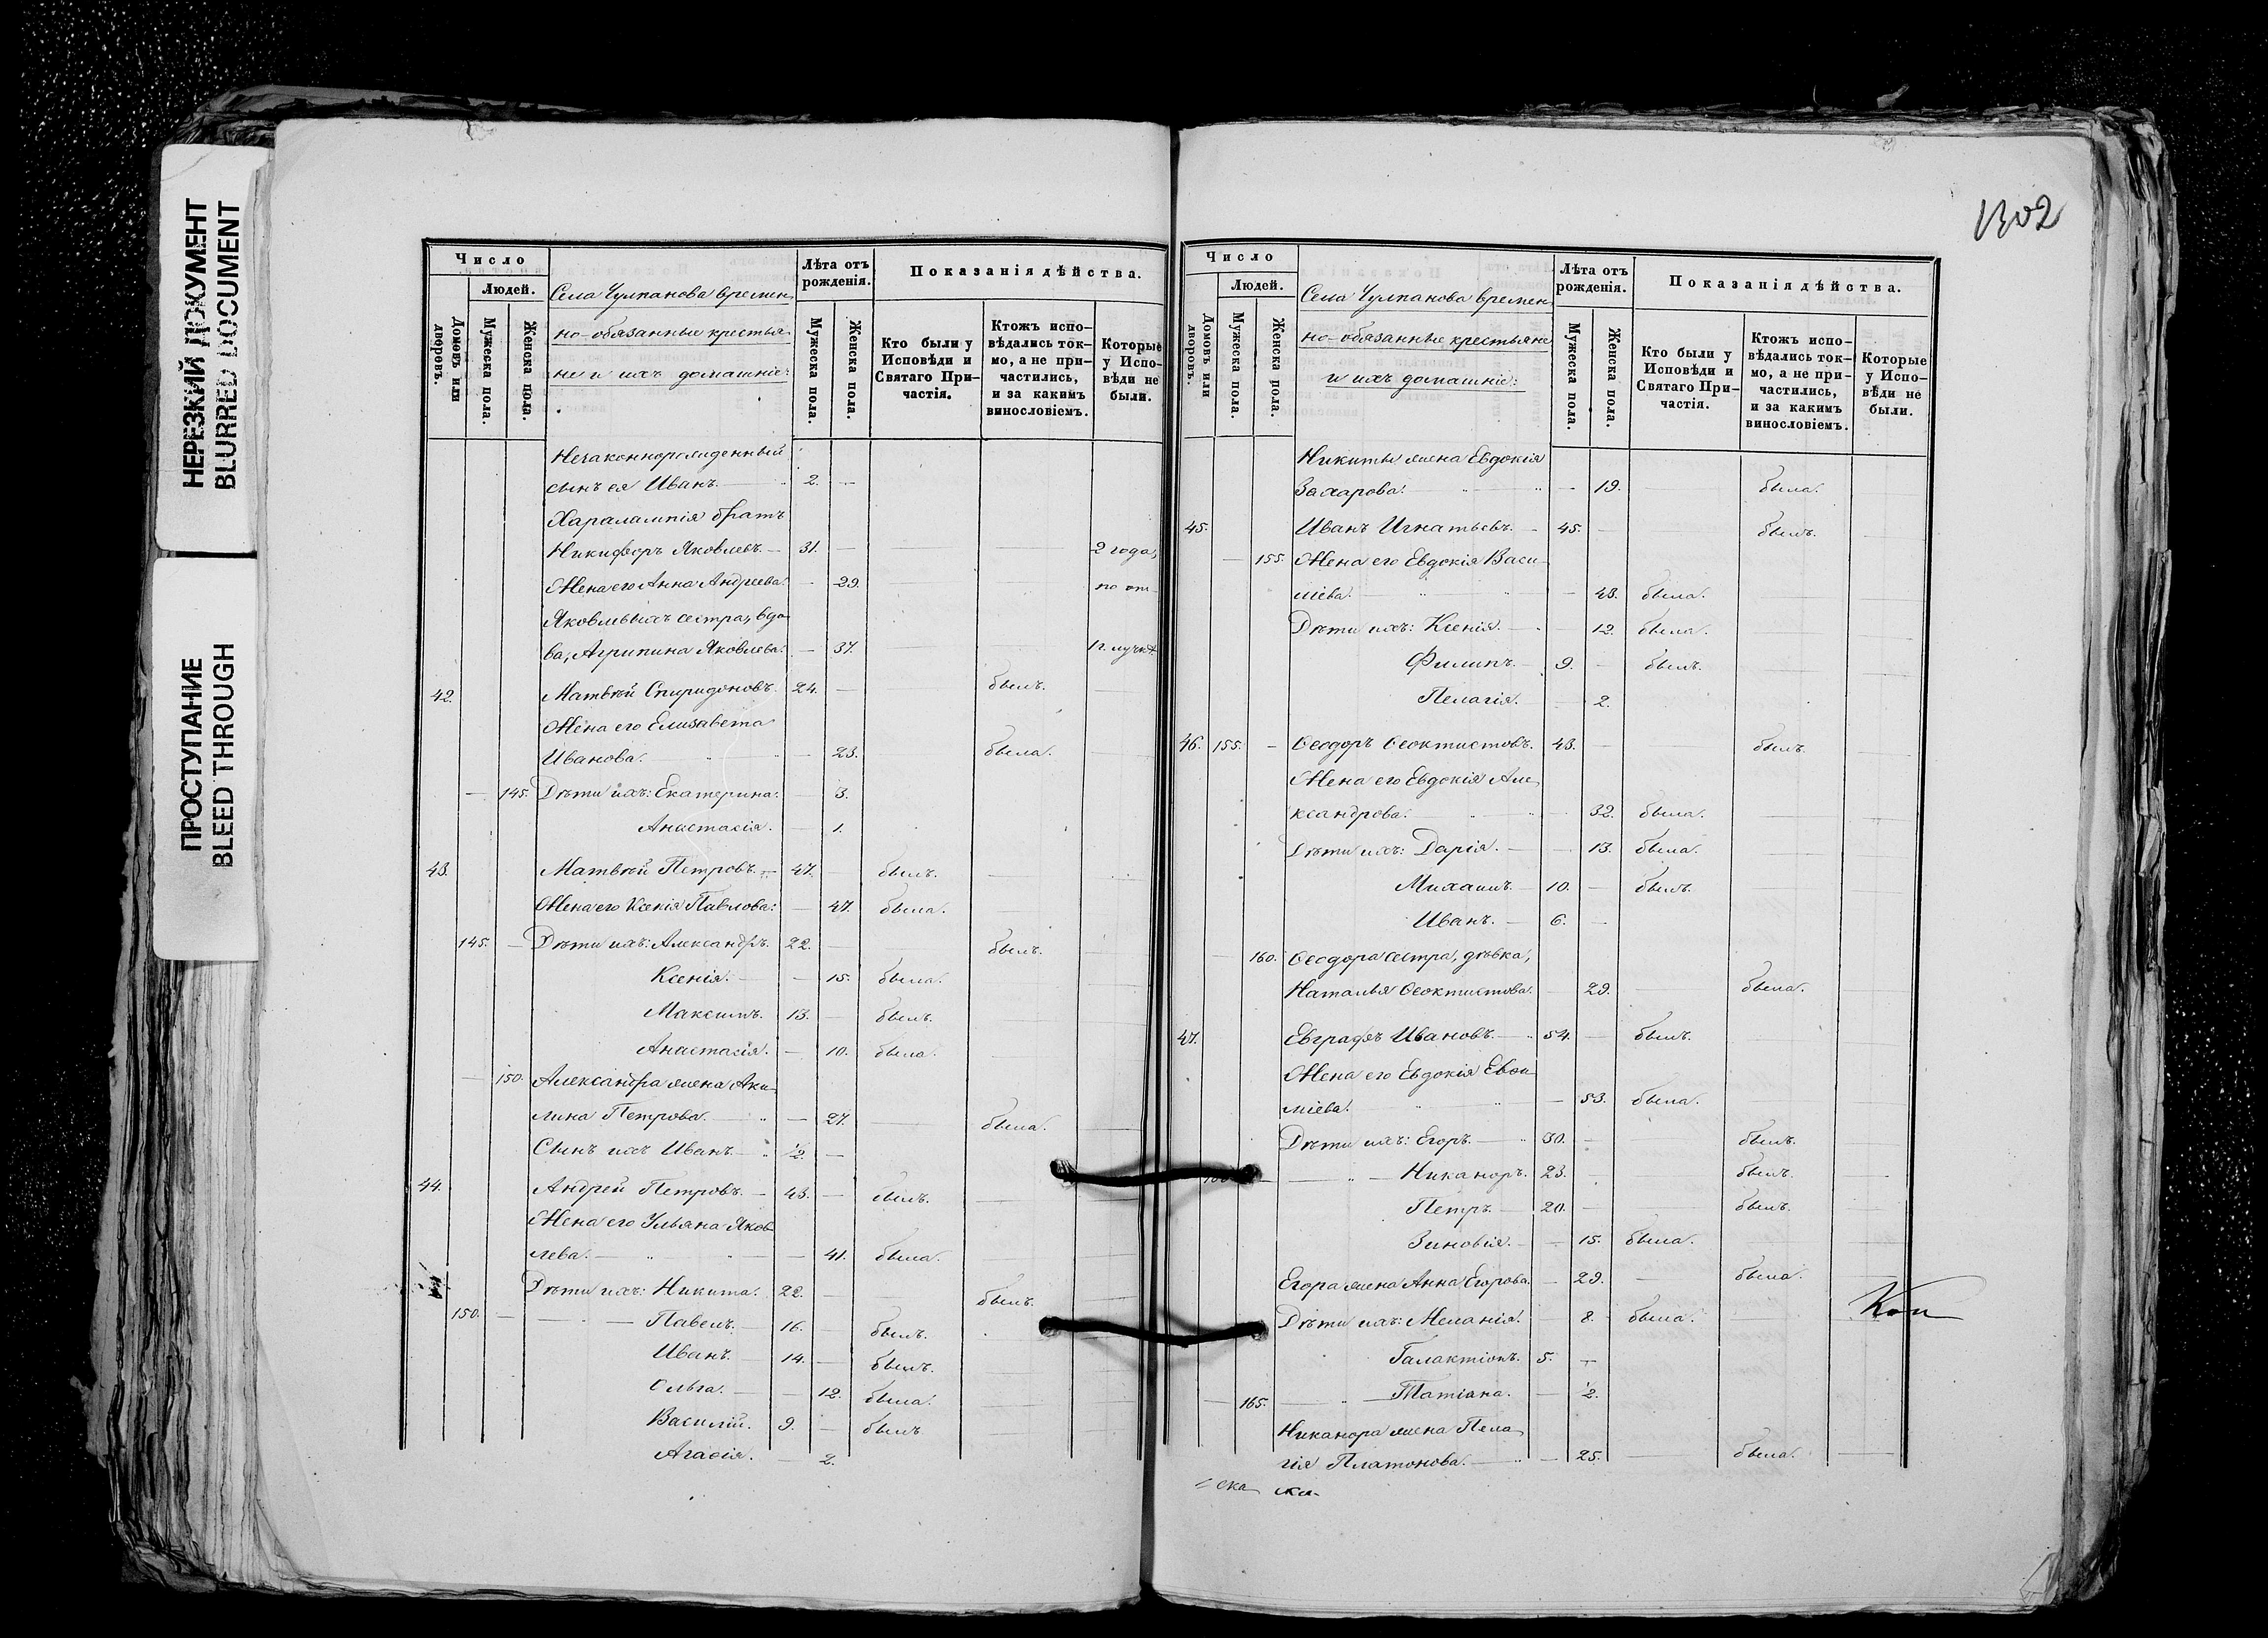 НЕРЕЗКИЙ ДОКУМЕНТ
BLURRED DOCUMENT
ПРОСТУПАНИЕ
BLEED THROUGH
Число
Людей.
Домовъ или дворовъ.
Мужеска пола.
Женска пола.
Села Чулпанова времен
но-обязанные крестья
не и ихъ домашніе:
Лѣта отъ рожденія.
Мужеска пола.
Женска пола.
Показанія дѣйства.
Кто были у Исповѣди и Святаго При-частія.
Ктожъ испо-вѣдались ток-мо, а не при-частились, и за какимъ винословіемъ.
Которые у Испо-вѣди не были.
Незаконнорожденный
сынъ ея Иванъ. — 2. —
Харалампія братъ
Никифоръ Яковлевъ. — 31. — 2 года,
Жена его Анна Андреева. — 29. по от
Яковлевыхъ сестра, вдо
ва, Агрипина Яковлева. — 37.
42. Матвѣй Спиридоновъ. 24. — былъ.
Жена его Елизавета
Иванова. — 23. была.
— 145. Дѣти ихъ: Екатерина. — 3.
Анастасія. — 1.
43. Матвѣй Петровъ. — 47. — былъ.
Жена его Ксенія Павлова: — 47. была.
145. — Дѣти ихъ: Александръ. 22. — былъ.
Ксенія. — 15. была.
Максимъ. 13. — былъ.
Анастасія. — 10. была.
— 150. Александра жена Аки
лина Петрова. — 27. была.
Сынъ ихъ Иванъ. — ½. —
44. Андрей Петровъ. — 43. — былъ.
Жена его Ульяна Яков
лева. — 41. была.
Дѣти ихъ: Никита. 22. — былъ.
150. — Павелъ. 16. — былъ.
Иванъ. 14. — былъ.
Ольга. — 12. была.
Василій. 9. — былъ.
Агафія. — 2.
1302
Число
Людей.
Домовъ или дворовъ.
Мужеска пола.
Женска пола.
Села Чулпанова времен
но-обязанные крестьяне
и ихъ домашніе:
Лѣта отъ рожденія.
Мужеска пола.
Женска пола.
Показанія дѣйства.
Кто были у Исповѣди и Святаго При-частія.
Ктожъ испо-вѣдались ток-мо, а не при-частились, и за какимъ винословіемъ.
Которые у Испо-вѣди не были.
Никиты жена Евдокія
Захарова. — 19. была.
45. Иванъ Игнатьевъ. — 45. — былъ.
— 155. Жена его Евдокія Васи
ліева. — 43. была.
Дѣти ихъ: Ксенія. — 12. была.
Филипъ. — 9. — былъ.
Пелагія. — 2.
46. 155. — Ѳеодоръ Ѳеоктистовъ. 43. — былъ.
Жена его Евдокія Але
ксандрова. — 32. была.
Дѣти ихъ: Дарія. — 13. была.
Михаилъ. — 10. — былъ.
Иванъ. — 6. —
— 160. Ѳеодора сестра, дѣвка,
Наталья Ѳеоктистова. — 29. была.
47. Евграфъ Ивановъ. — 54. — былъ.
Жена его Евдокія Евѳи
міева. — 53. была.
Дѣти ихъ: Егоръ. — 30. — былъ.
Никаноръ. 23. — былъ.
Петръ. — 20. — былъ.
Зиновія. — 15. была.
Егора жена Анна Егорова. — 29. — была.
Дѣти ихъ: Меланія. — 8. была.
Галактіонъ. 5. —
— 165. — Татіана. — ½.
Никанора жена Пела
гія Платонова. — 25. — была.